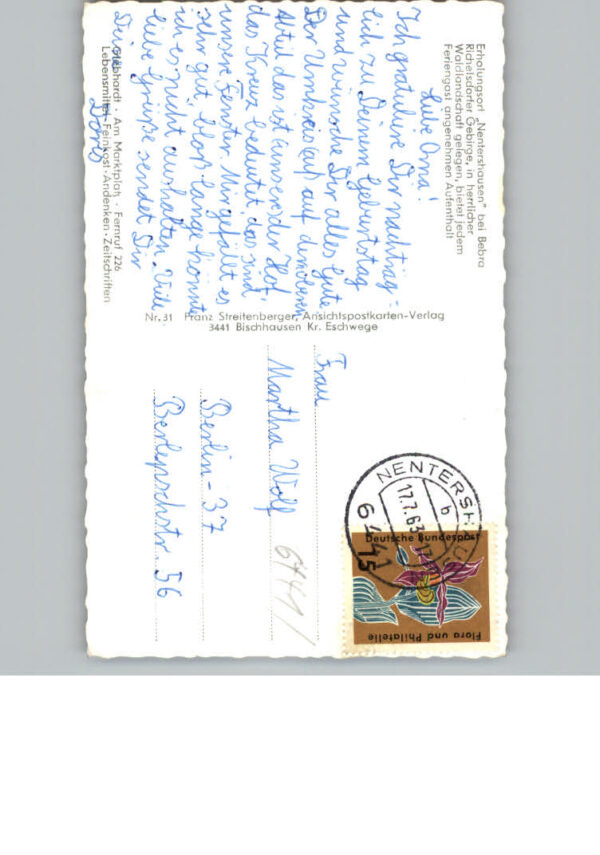 Erholungsort „Nentershausen" bei Bebra
Richelsdorfer Gebirge, in herrlicher
Waldlandschaft gelegen, bietet jedem
Feriengast angenehmen Aufenthalt
Liebe Oma!
Ich gratuliere Dir nachträg-
lich zu Deinem Geburtstag
und wünsche Dir alles Gute
Der Umkreis auf dem oberen
Abteil das ist unser der Hof
das Kreuz bedeutet das sind
unsere Fenster. Mir gefällt es
sehr gut, blos lange könnte
ich es nicht aushalten. Viele
liebe Grüße sendet Dir
Deine
Doris
Gebhardt · Am Marktplatz · Fernruf 226
Lebensmittel · Feinkost · Andenken · Zeitschriften
Nr. 31 Franz Streitenberger, Ansichtspostkarten-Verlag
3441 Bischhausen Kr. Eschwege
Frau
Martha Wolf
Berlin-37
Berlepschstr. 56
6441/
NENTERSHAUSEN
b
17.7.63
6441
Deutsche Bundespost
15
Flora und Philatelie